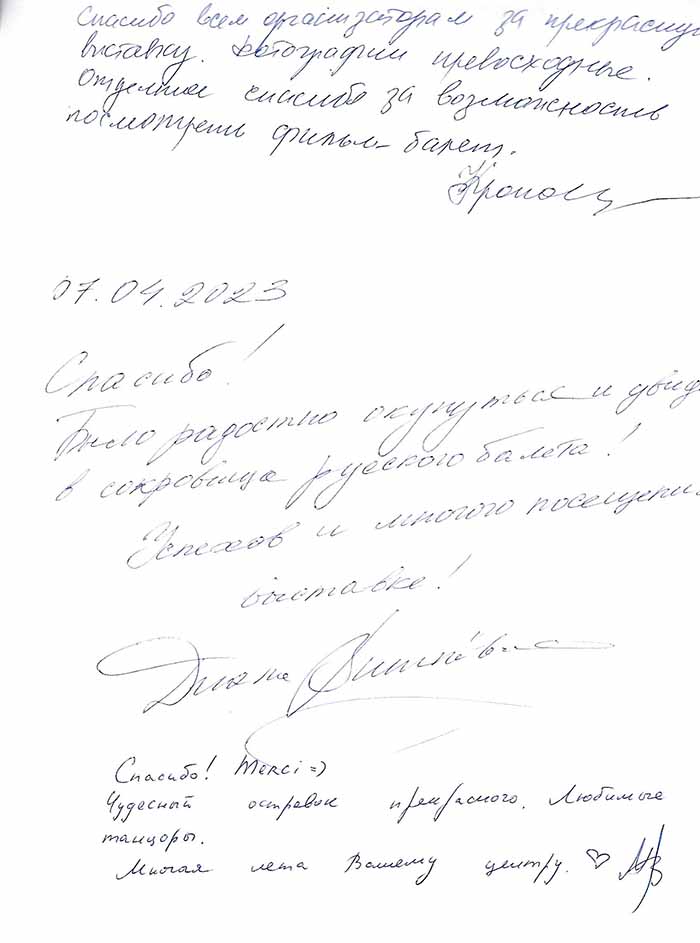 Спасибо всем организаторам за прекрасную
выставку. Фотографии превосходные.
Отдельное спасибо за возможность
посмотреть фильм-балет.
07.04.2023
Спасибо!
Было радостно окунуться и
в сокровища русского балета!
Успехов и много посещени
выставке!
Диана
Спасибо! Merci =)
Чудесный островок прекрасного. Любимые
танцоры.
Многая лета Вашему центру. ♡